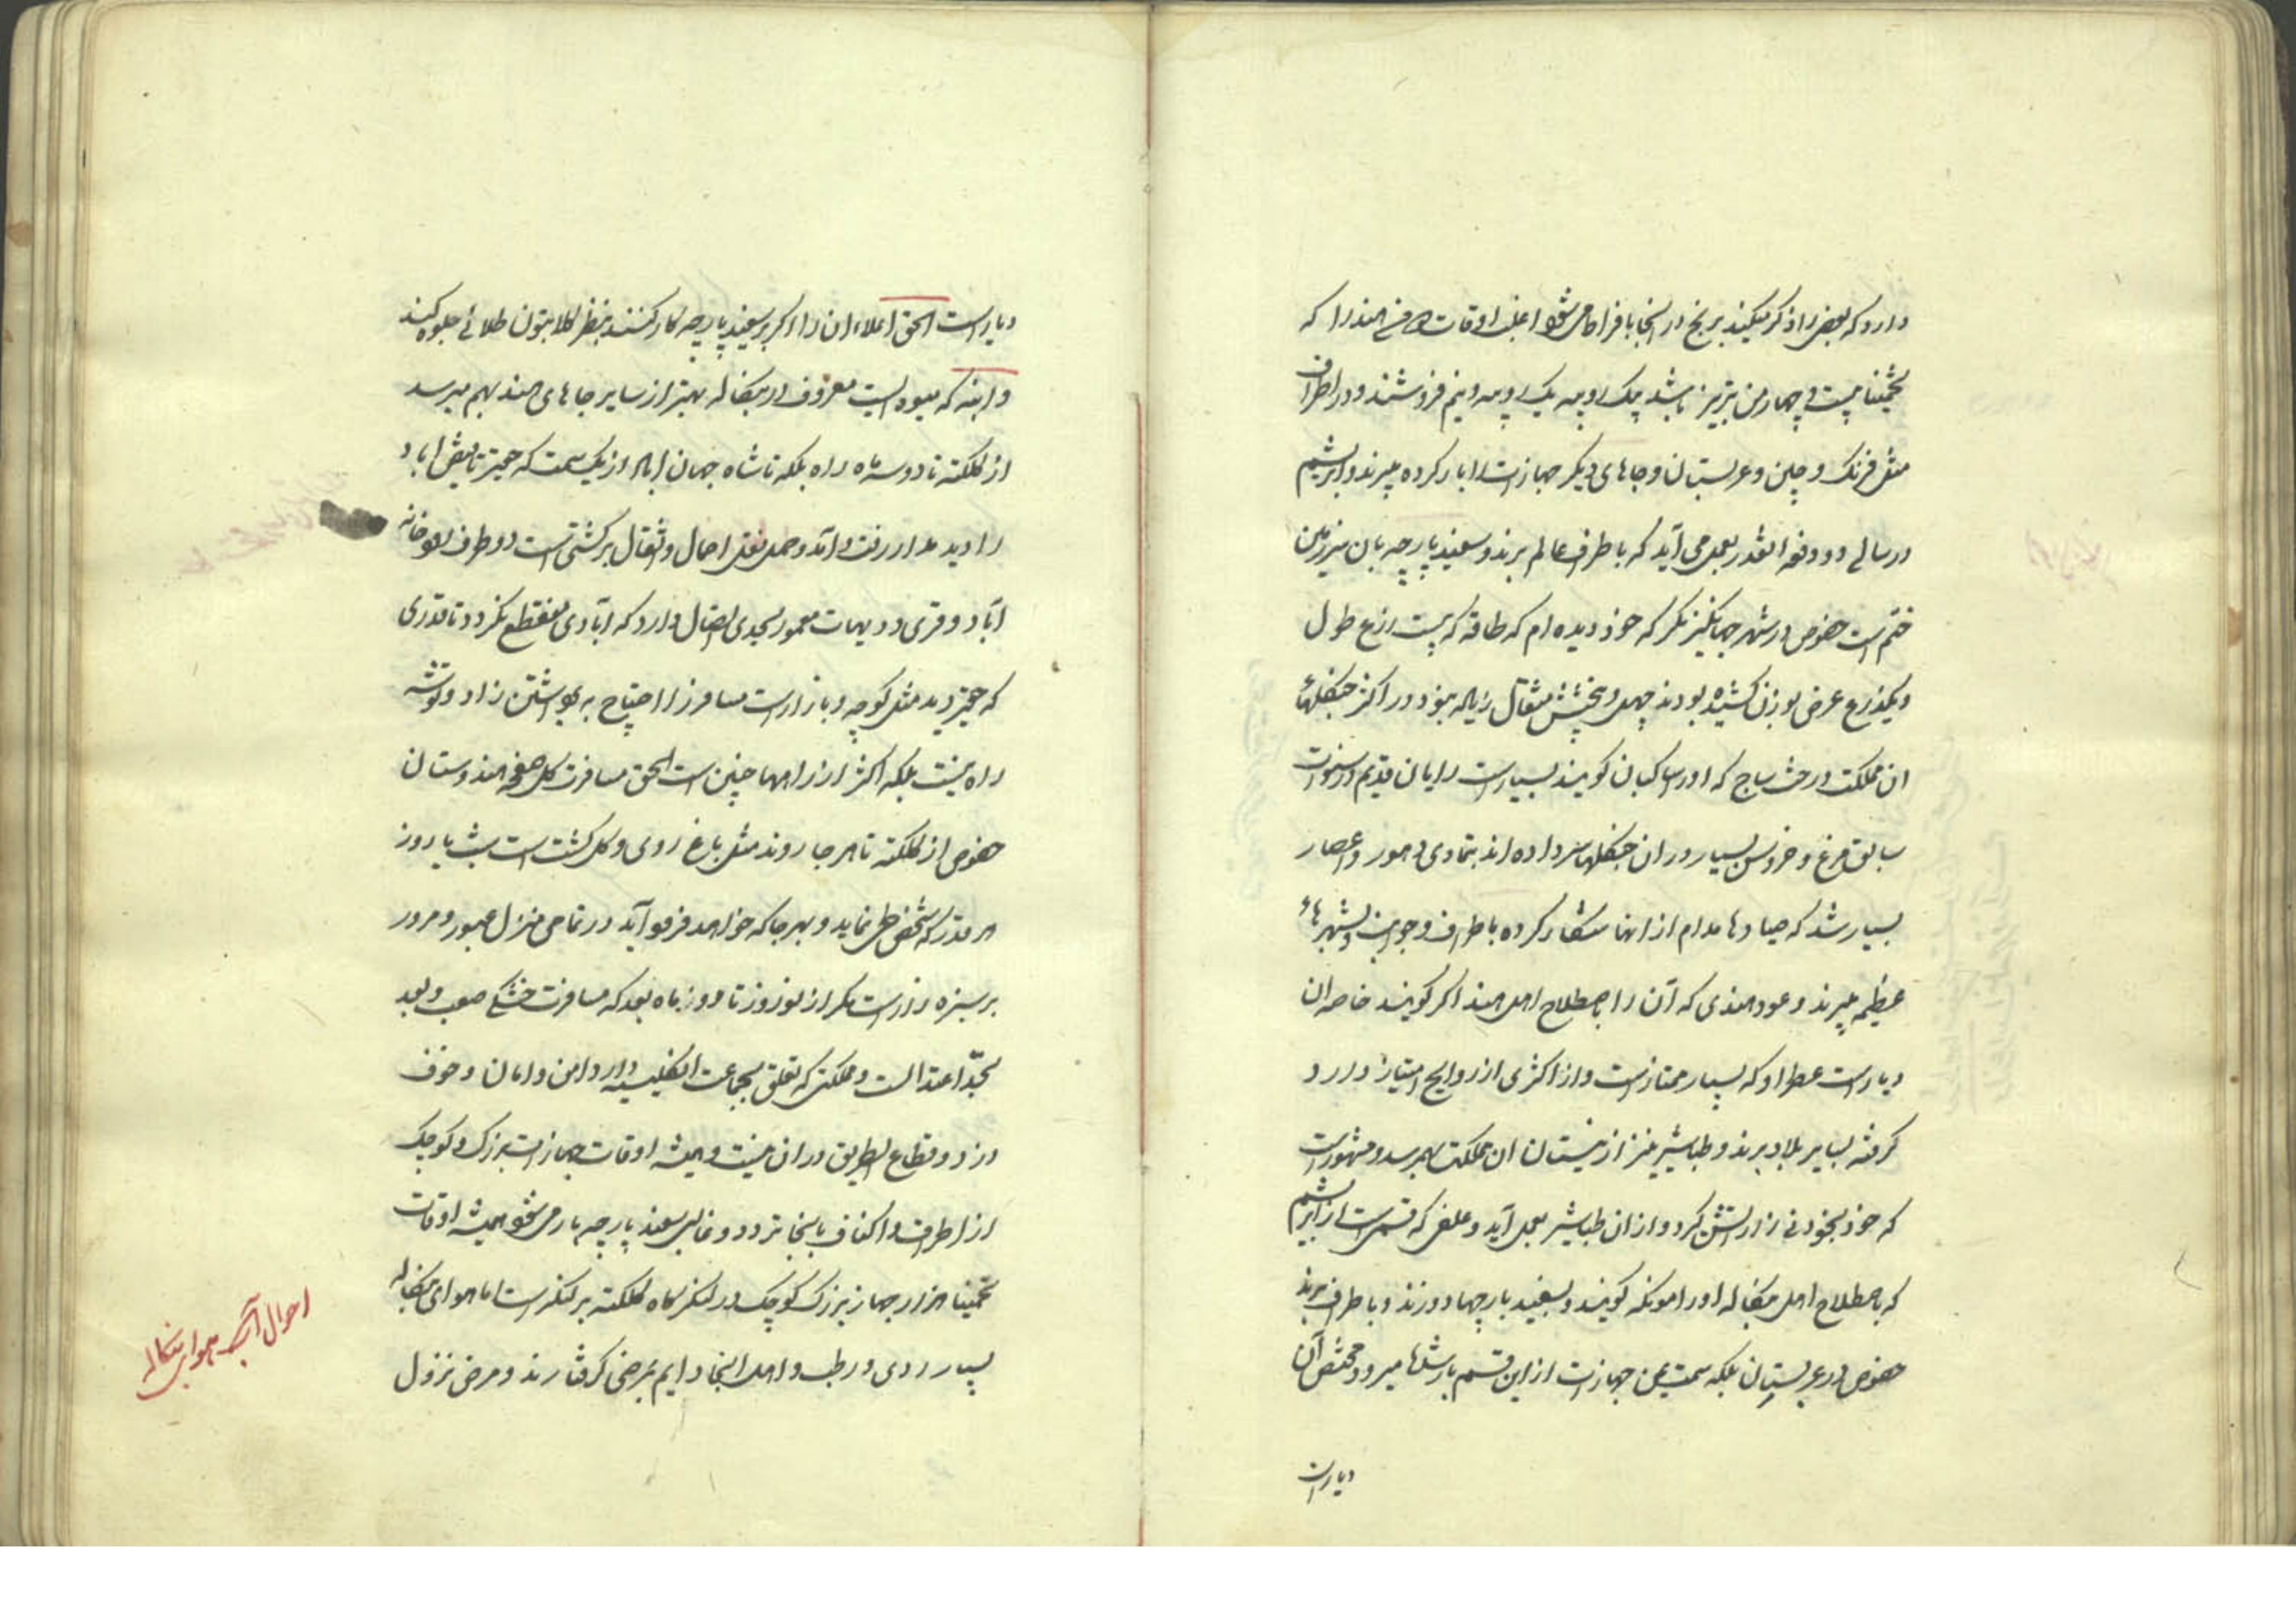 دارد که بعضی را ذکر میکنیم برنج در اینجا بافراط می شود اغلب اوقات من هند را که
تخمینا بیست و چهار من تبریز باشد بیک روپیه یک روپیه و نیم فروشند و در اطراف
مثل فرنگ و چین و عربستان و جاهای دیگر جهازات را بار کرده میبرند و ابریشم
در سالی دو دفعه انقدر بعمل می آید که باطراف عالم برند و سفید پارچه بان سرزمین
ختم است خصوص در شهر جهانگیرنگر که خود دیده ام که طاقه که بیست ذرع طول
و یکذرع عرض بوزن کشیده بودند چهل و پنجشش مثقال زیاده نبود و در اکثر جنگلهای
ان مملکت درخت ساج که اورا ساکبان کویند بسیارست رایان قدیم در سنوات
سابق مرغ و خروس بسیار در ان جنگلها سر داده اند بتمادی دهور و اعصار
بسیار شد که صیادها مدام از انها شکار کرده باطراف و جوانب و شهرهای
عظیمه میبرند و عود هندی که آن را باصطلاح اهل هند اکر کویند خاصه ان
دیارست عطر او که بسیار ممتازست و از اکثری از روایح امتیاز دارد
کرفته بسایر بلاد برند و طباشیر نیز از نیستان ان مملکت بهم رسد و مشهورست
که خود بخود نی زار آتش کیرد و از ان طباشیر بعمل آید و علفی که قسمی است از ابریشم
که باصطلاح اهل بنگاله اورا مونکه کویند و بسفید پارچها دوزند و باطراف برند
خصوص در عربستان بلکه سمت یمن جهازات از این قسم پارشها میرود و مختص آن
دیار است
دیار است الحق اعلاء ان را اکر بر سفید پارچه کار کنند بنظر کلابتون طلائی جلوه کند
و انبه که میوه ایست معروف در بنگاله بهتر از سایر جاهای هند بهم میرسد
از کلکته تا دو سه ماه راه بلکه تا شاه جهان اباد از یک سمت که حقیر تا فیض اباد
را دید مدار رفت و آمد و حمل نقل احمال و اثقال بر کشتی است دو طرف رودخانه
آباد و قری و دیهات معمور بحدی اتصال دارد که آبادی منقطع نکردد تا قدری
که حقیر دید مثل کوچه و بازارست مسافر را احتیاج به برداشتن زاد و توشه
راه نیست بلکه اکثر از راهها چنین است الحق مسافرت کل صفحه هندوستان
خصوص از کلکته تا هر جا روند مثل باغ روی و کل کشت است شب یا روز
هر قدر که شخص طی نماید و بهر جا که خواهد فرود آید در تمامی منزل عبور و مرور
بر سبزه زارست مکر از نوروز تا دو ماه بعد که مسافرت خشکی صعب و بعد
بحد اعتدالست و مملکتی که تعلق بجماعت انکلیسیه دارد امن و امان و خوف
دزد و قطاع الطریق در ان نیست و همیشه اوقات جهازات بزرک و کوچک
از اطراف و اکناف باینجا تردد و غالبا سفید پارچه بار می شود همیشه اوقات
تخمینا هزار جهاز بزرک کوچک در لنکرکاه کلکته بر لنکرست اما هوای بنگاله
بسیار ردی و رطب و اهل اینجا دایم بمرضی کرفتارند و مرض نزول
احوال آب و هوای بنگاله